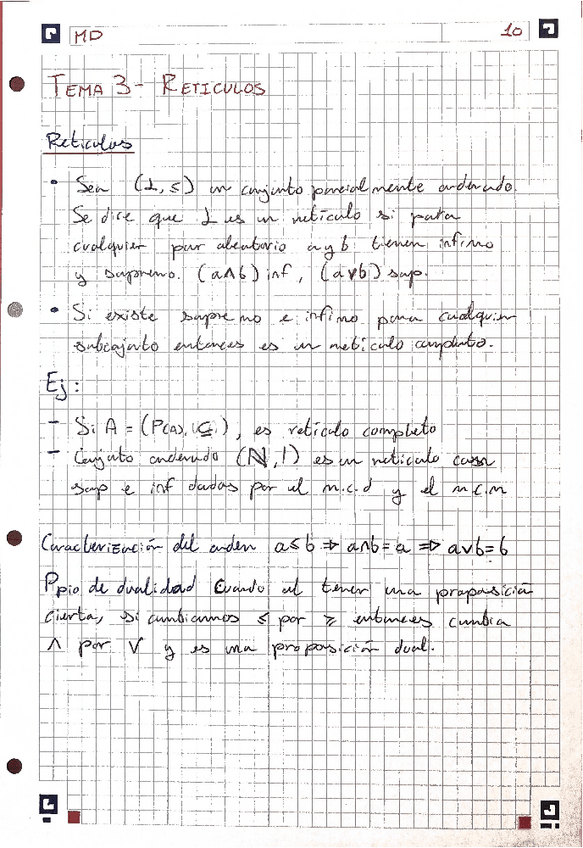 MD 10
TEMA 3 - RETICULOS
Reticulos
• Sea (L, ≤) un conjunto parcialmente ordenado.
Se dice que L es un retículo si para
cualquier par aleatorio a y b tienen infimo
y supremo. (a∧b) inf, (a∨b) sup.
• Si existe supremo e infimo para cualquier
subconjunto entonces es un retículo completo.
Ej:
- Si A = (P(A), ⊆), es retículo completo
- Conjunto ordenado (ℕ, |) es un retículo
sup e inf dadas por el m.c.d y el m.c.m
Caracterización del orden a≤b ⇒ a∧b=a ⇒ a∨b=b
Ppio de dualidad Cuando al tener una proposición
cierta, si cambiamos ≤ por ≥ entonces cambia
∧ por ∨ y es una proposición dual.